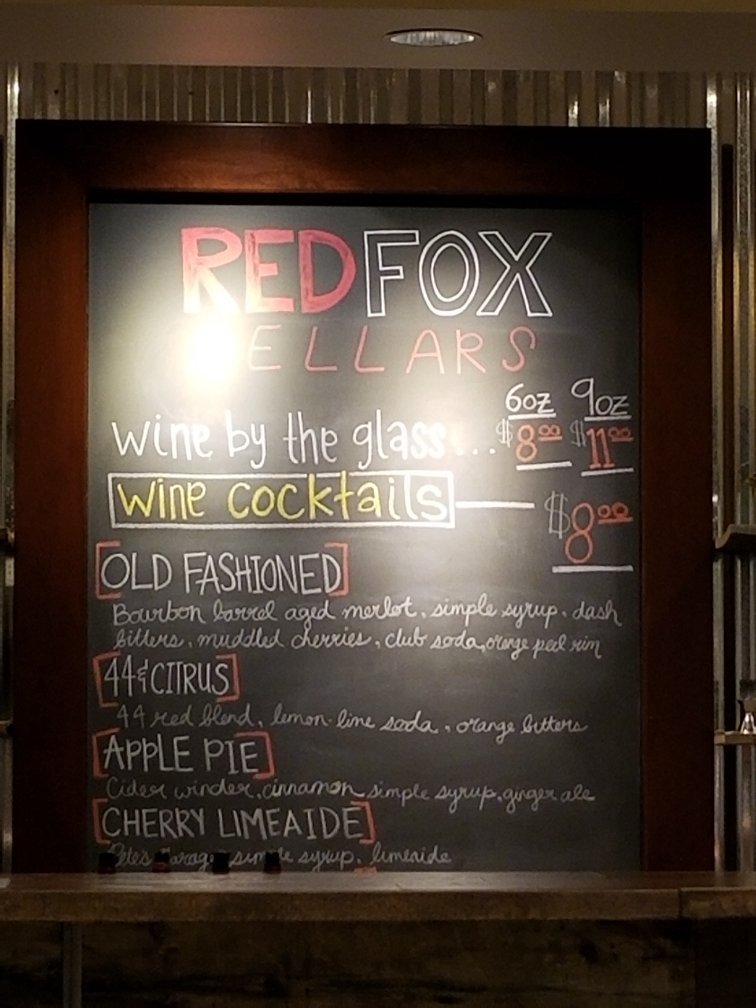 RED FOX
CELLARS
6oz 9oz
wine by the glass... $8.00 $11.00
wine cocktails $8.00
OLD FASHIONED
Bourbon barrel aged merlot, simple syrup, dash
bitters, muddled cherries, club soda, orange peel rim
44 & CITRUS
44 red blend, lemon-lime soda, orange bitters
APPLE PIE
Cider winder, cinnamon simple syrup, ginger ale
CHERRY LIMEAIDE
Pete's Garage simple syrup, limeaide